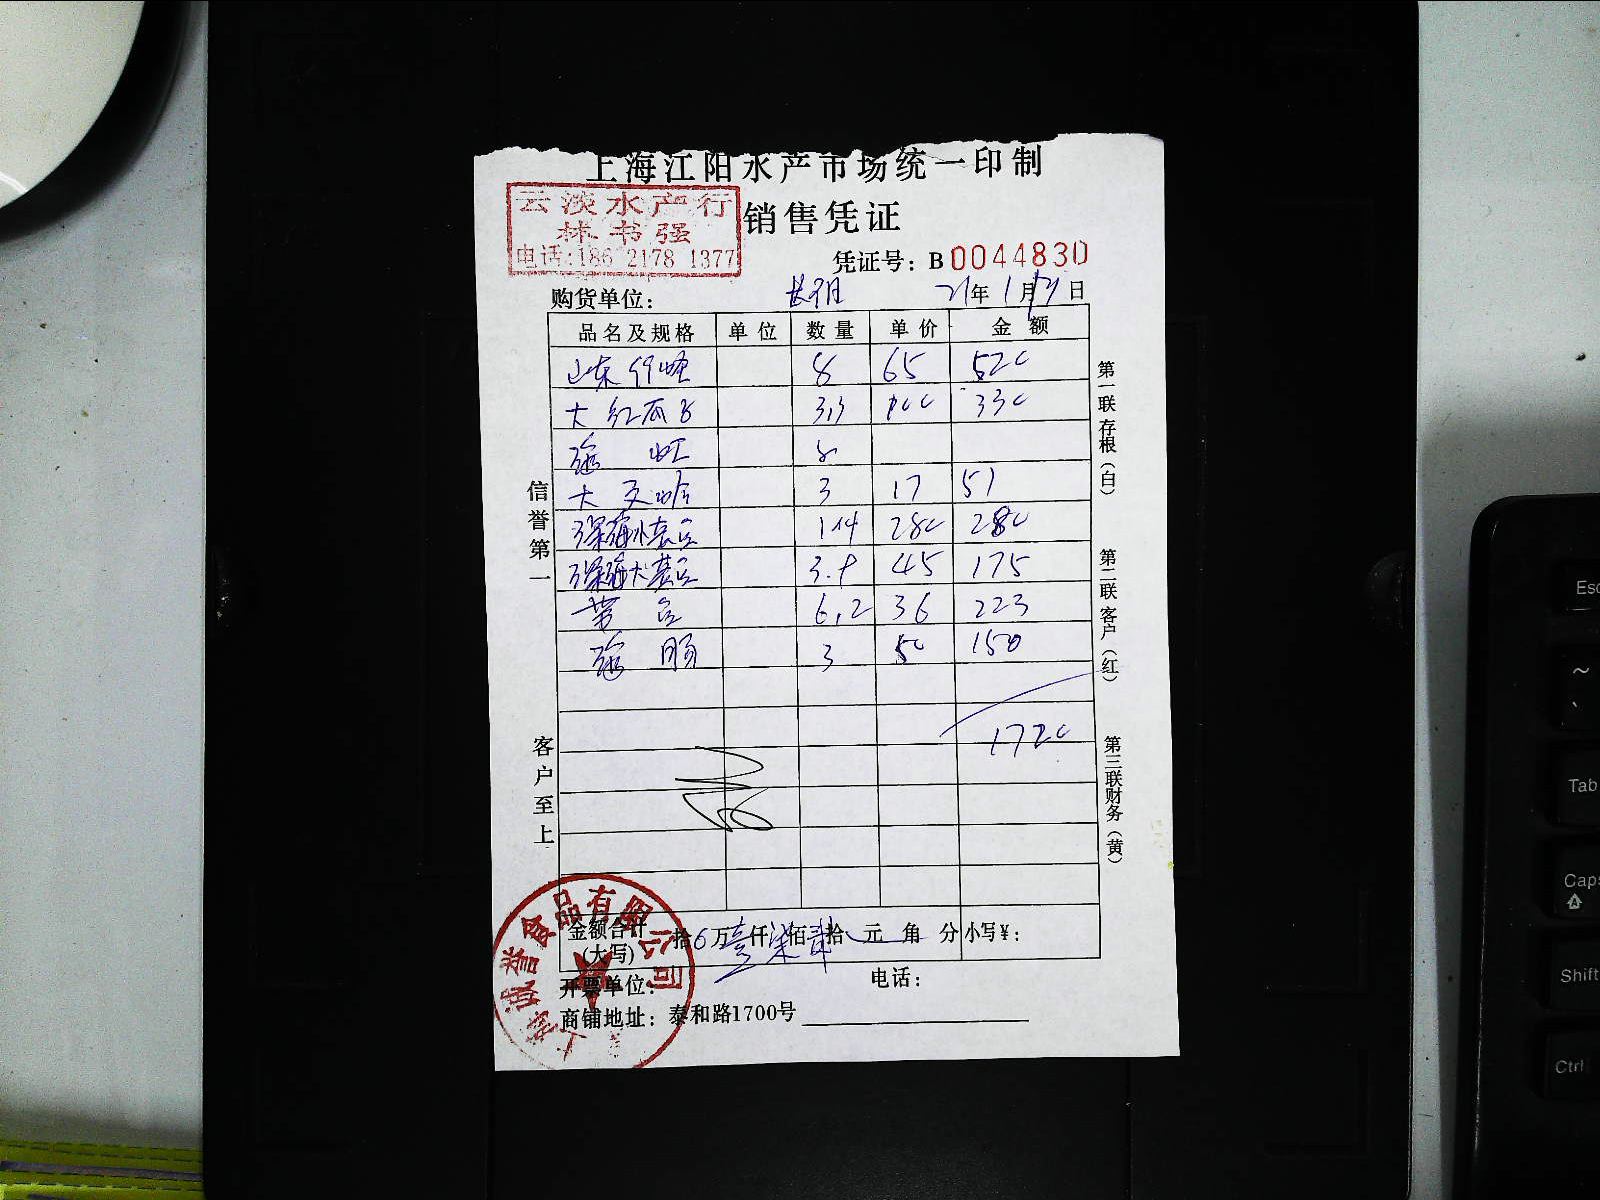 上海江阳水产市场统一印制
云淡水产行
林书强
电话:186 2178 1377
销售凭证
凭证号: B0044830
购货单位:
21年1月 日
品名及规格 单位 数量 单价 金额
山东 8 65 520
大红瓜 3.3 100 330
大 3 17 51
深海小 114 280 280
深海大 3.9 45 175
带 6.2 36 223
3 50 150
1720
信誉第一
客户至上
第一联存根(白)
第二联客户(红)
第三联财务(黄)
金额合计(大写) 拾 万壹仟柒佰贰拾 元 角 分 小写¥:
开票单位: 电话:
商铺地址: 泰和路1700号
上海诚誉食品有限公司
Esc
~
`
Tab
Caps
Shift
Ctrl